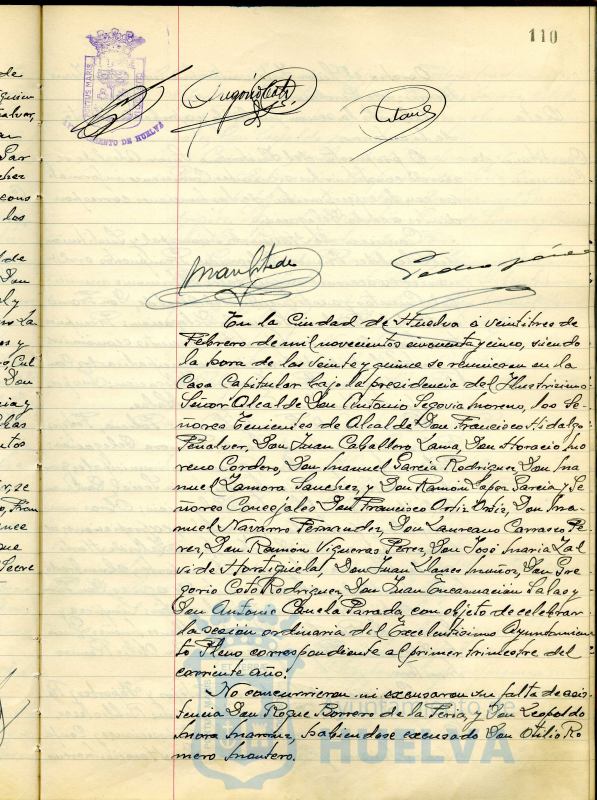 110
AYUNTAMIENTO DE HUELVA
En la Ciudad de Huelva á veintitres de
Febrero de mil novecientos cincuenta y cinco, siendo
la hora de las veinte y quince se reunieron en la
Casa Capitular bajo la presidencia del Ilustrisimo
Señor Alcalde Don Antonio Segovia Moreno, los Se-
ñores Tenientes de Alcalde Don Francisco Hidalgo
Peñalver, Don Juan Caballero Lama, Don Horacio Mo
reno Cordero, Don Manuel Garcia Rodriguez, Don Ma
nuel Zamora Sanchez, y Don Ramón Lopez Garcia y Se
ñores Concejales Don Francisco Ortiz Ortiz, Don Ma-
nuel Navarro Fernandez, Don Laureano Carrasco Pé
rez, Don Ramón Vigueras Pérez, Don José Maria Zal
vide Hordigüela, Don Juan Llanes Muñoz, Don Gre
gorio Coto Rodriguez, Don Juan Encarnacion Salas y
Don Antonio Canela Parada, con objeto de celebrar
la sesion ordinaria del Excelentisimo Ayuntamien
to Pleno correspondiente al primer trimestre del
corriente año.
No concurrieron ni excusaron su falta de asis
tencia Don Roque Borrero de la Feria, y Don Leopoldo
Mora habiendose excusado Don Otilio Ro
mero Montero.
Ayuntamiento de
HUELVA